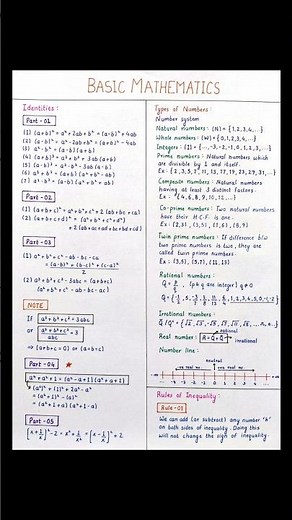 BASIC MATHEMATICS
Identities :
Part - 01
(1) (a+b)² = a² + 2ab + b² = (a-b)² + 4ab
(2) (a-b)² = a² - 2ab + b² = (a+b)² - 4ab
(3) a² - b² = (a-b) (a+b)
(4) (a+b)³ = a³ + b³ + 3ab (a+b)
(5) (a-b)³ = a³ - b³ - 3ab (a-b)
(6) a³ + b³ = (a+b) (a² + b² - ab)
(7) a³ - b³ = (a-b) (a² + b² + ab)
Part - 02
(1) (a+b+c)² = a² + b² + c² + 2 (ab + bc + ca)
(2) (a+b+c+d)² = (a² + b² + c² + d²)
+ 2 (ab + ac + ad + bc + bd + cd)
Part - 03
(1) a² + b² + c² - ab - bc - ca
= (a-b)² + (b-c)² + (c-a)²
2
(2) a³ + b³ + c³ - 3abc = (a+b+c)
(a² + b² + c² - ab - bc - ac)
NOTE
If a³ + b³ + c³ = 3abc
or a³ + b³ + c³ / abc = 3
⇒ (a+b+c = 0) or (a=b=c)
Part - 04
a⁴ + a² + 1 = (a² - a + 1) (a² + a + 1)
(a²)² + (1)² + 2a² - a²
= (a² + 1)² - (a)²
= (a² + 1 + a) (a² + 1 - a)
Part - 05
(x + 1/x)² - 2 = x² + 1/x² = (x - 1/x)² + 2
Types of Numbers :
Number system
Natural numbers : (N) = {1,2,3,4,...}
Whole numbers : (W) = {0,1,2,3,4,...}
Integers : (I) = {...,-3,-2,-1,0,1,2,3,...}
Prime numbers : Natural numbers
which are divisible by 1 and itself.
Ex : 2,3,5,7,11,13,17,19,23,29,31,...
Composite numbers : Natural numbers
having at least 3 distinct factors
Ex : {4,6,8,9,10,12,...}
Co-prime numbers : Two natural numbers
have their H.C.F is one.
Twin prime numbers : If difference b/w
two prime numbers is two, they are
called twin prime numbers.
Ex : (3,5), (5,7), (11,13)
Rational numbers :
Irrational numbers :
rational
Real number : R = Q + Qᶜ
irrational
Number line :
neutral
Rules of Inequality :
Rule - 01
We can add (or subtract) any number 'k'
on both sides of inequality. Doing this
will not change the sign of inequality.